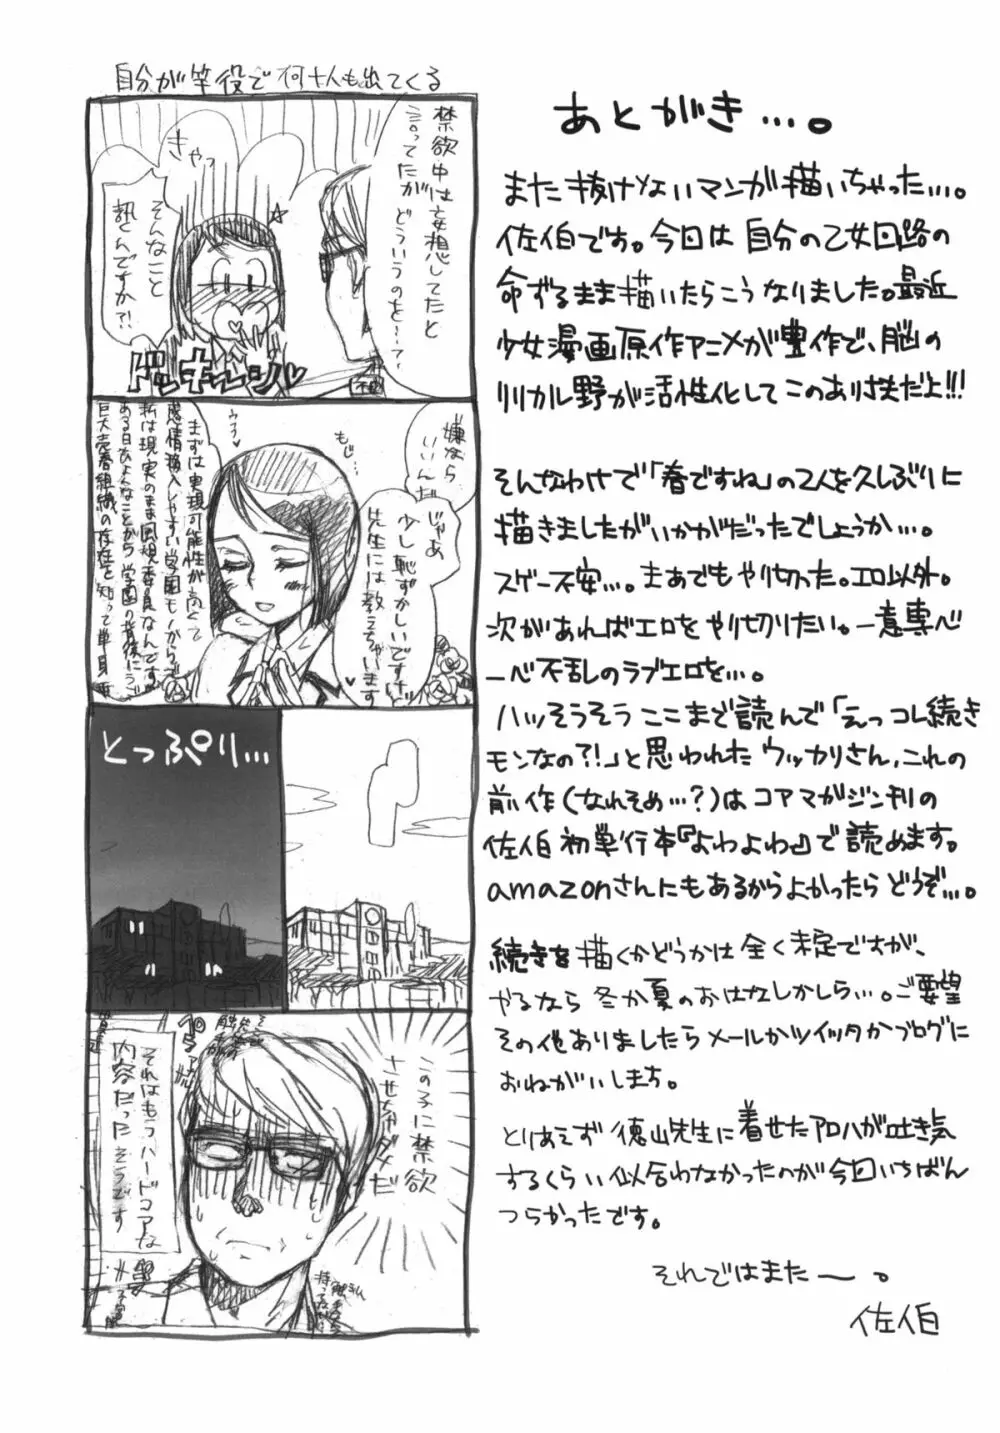 自分が竿役で何十人も出てくる
禁欲中は妄想してたと
言ってたが
どういうのを…?
きゃっ
そんなこと
訊くんですか?!
ドッキーン♥
嫌なら
いいんだ
もじ…
じゃあ
少し恥ずかしいですけど
先生には教えちゃいます
まずは実現可能性が高くて
感情移入しやすい学園モノから
私は現実のまま風紀委員なんですが
ある日ひょんなことから学園の背後に
巨大売春組織の存在を知って単身
とっぷり…
この子に禁欲
させちゃダメだ
それはもうハードコアな
内容だったそうです
あとがき…。
また抜けないマンガ描いちゃった…。
佐伯です。今回は自分の乙女回路の
命ずるまま描いたらこうなりました。最近
少女漫画原作アニメが豊作で、脳の
リリカル野が活性化してこのあり様だよ!!!
そんなわけで「春ですね」の2人を久しぶりに
描きましたがいかがだったでしょうか…。
スゲー不安…。まあでもやり切った。エロ以外。
次があればエロをやり切りたい。一意専心
一心不乱のラブエロを…。
ハッそうそうここまで読んで「えっコレ続き
モンなの?!」と思われたウッカリさん、これの
前作(なれそめ…?)はコアマガジン刊の
佐伯初単行本『よわよわ』で読めます。
amazonさんにもあるからよかったらどうぞ…。
続きを描くかどうかは全く未定ですが、
やるなら冬か夏のおはなしかしら…。ご要望
その他ありましたらメールかツイッタかブログに
おねがいしまち。
とりあえず徳山先生に着せたアロハが吐き気
するくらい似合わなかったのが今回いちばん
つらかったです。
それではまたー。
佐伯